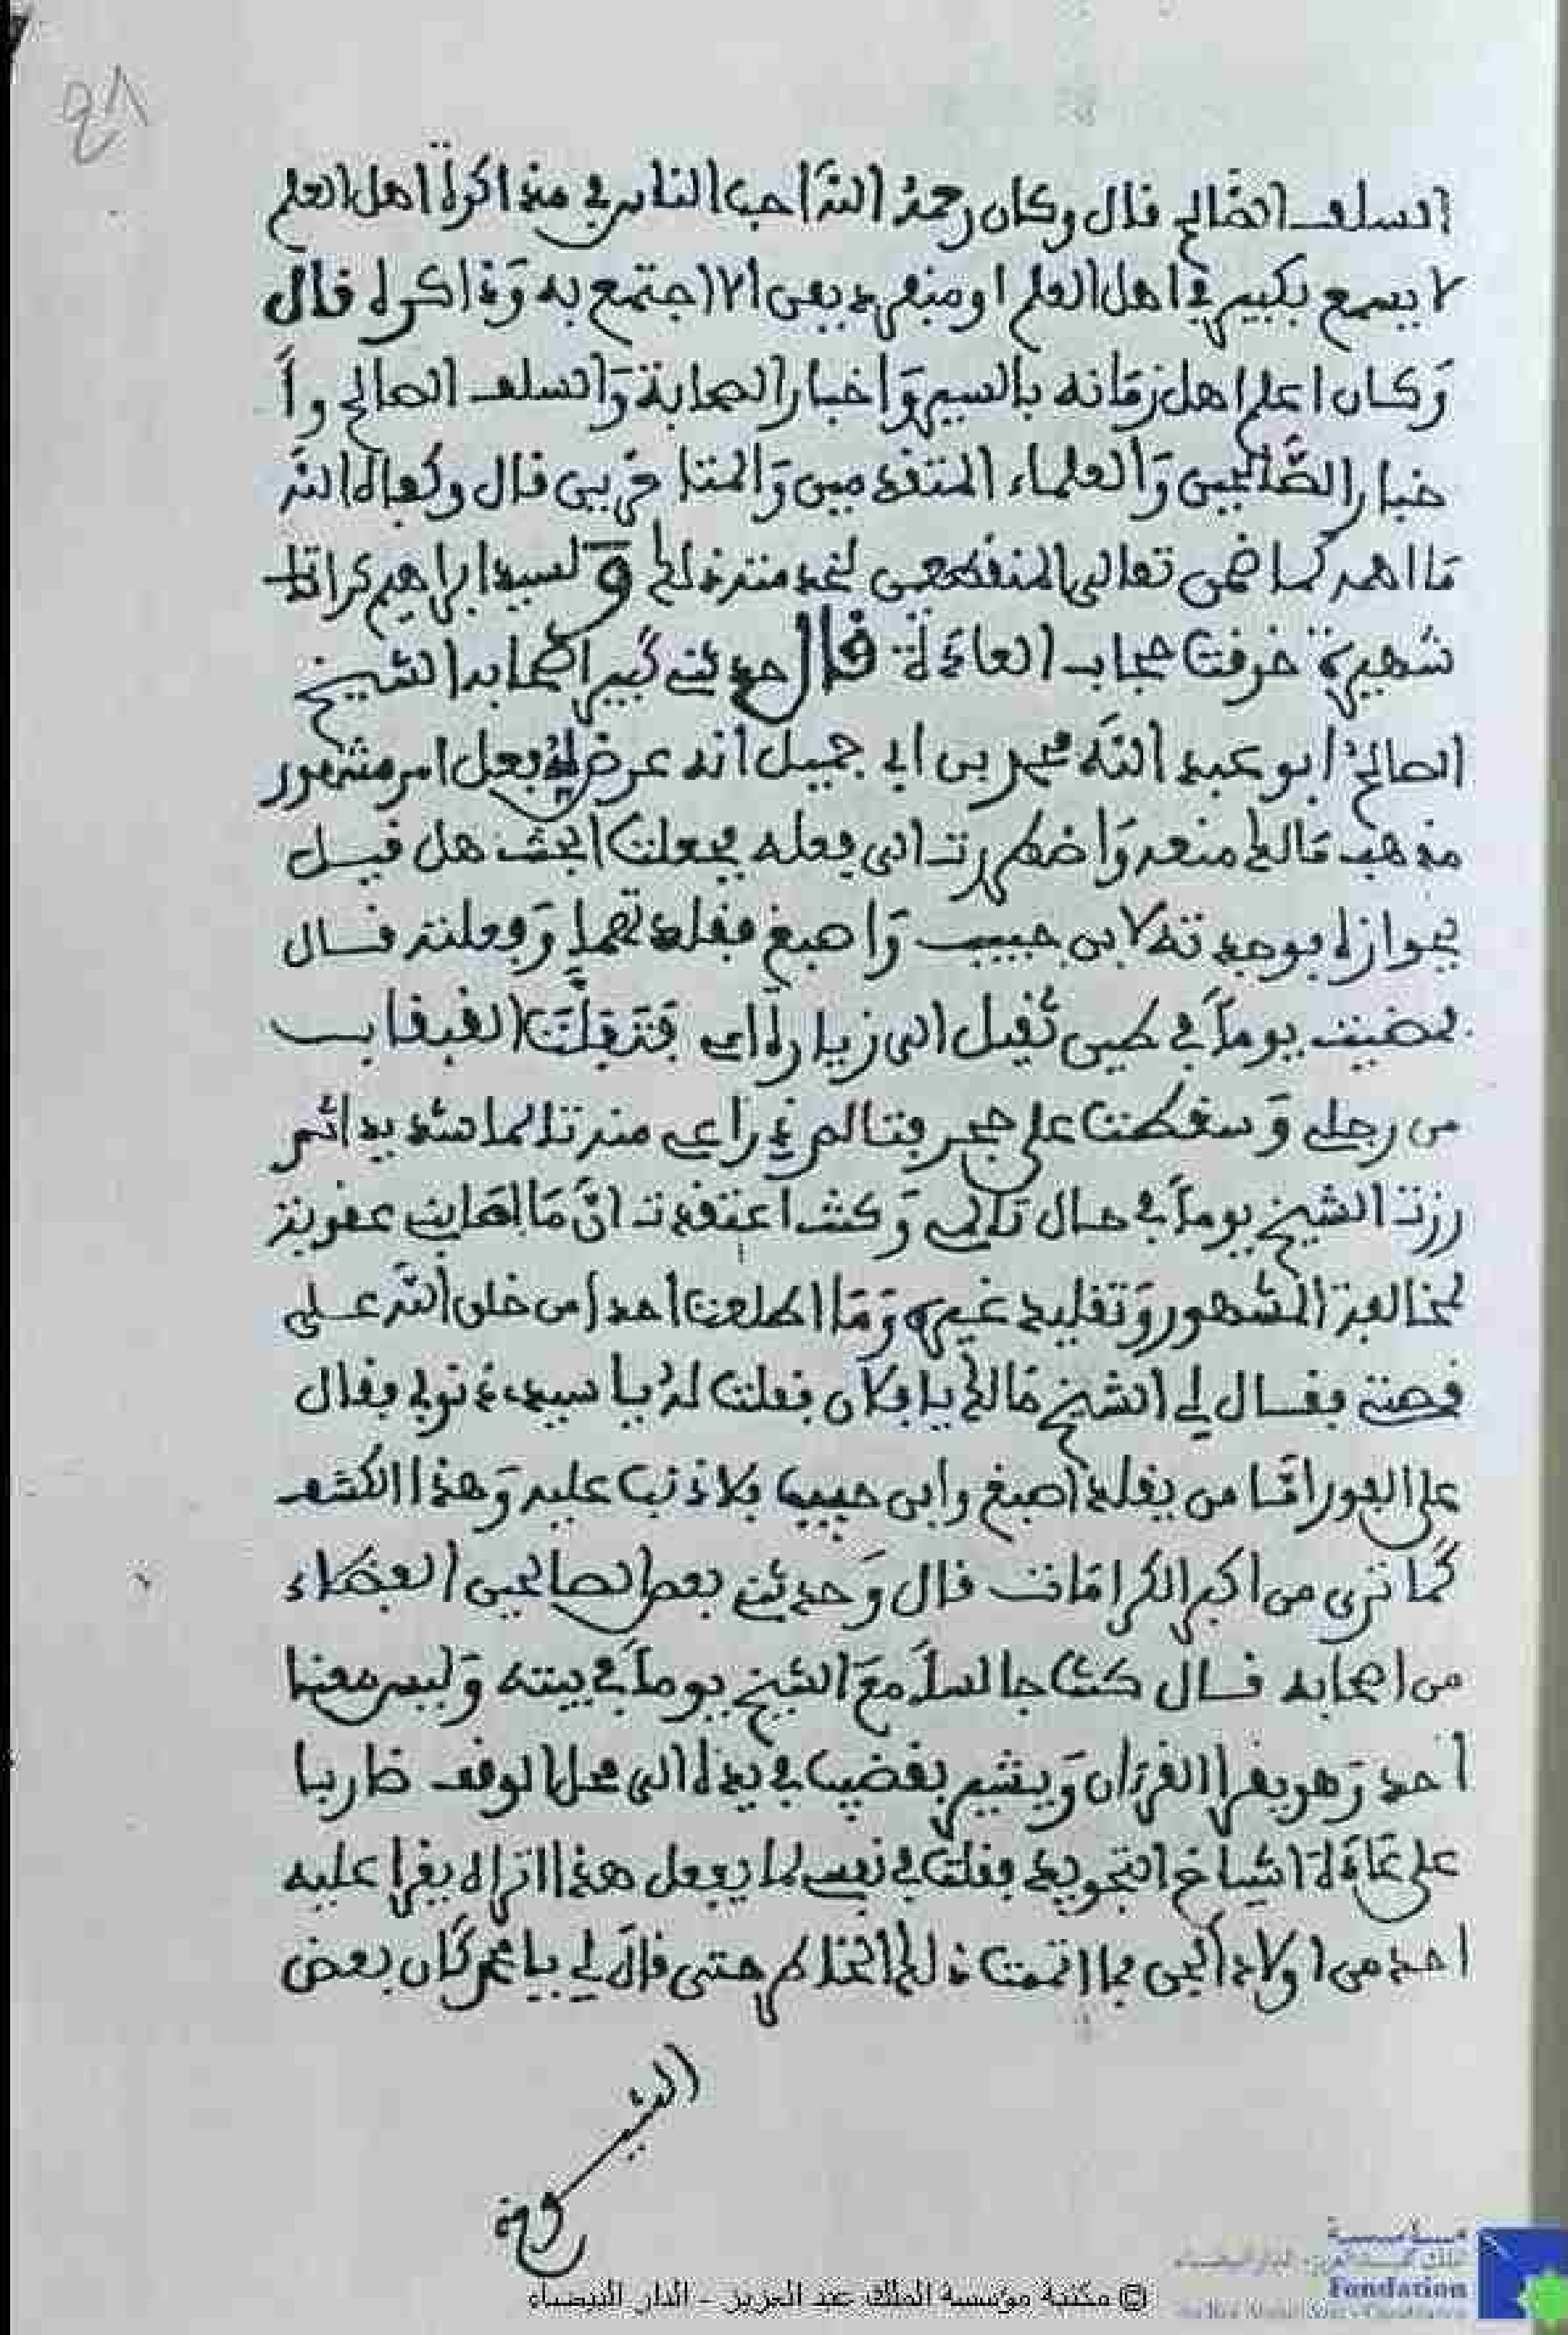 ٤٨
السلف الصالح قال وكان رحمه الله احب الناس في مذاكرة اهل العلم
لا يسمع بكبير في اهل العلم او منفرد بفن الا اجتمع به وذاكره قال
وكان اعلم اهل زمانه بالسير واخبار الصحابة والسلف الصالح وا
خبار الصالحين والعلماء المتقدمين والمتاخرين قال وكفاه الله
ما اهمه كما ضمن تعالى للمنقطعين لخدمته ذلك ولسيد ابراهيم كرامات
شهيرة خرقت حجاب العادة قال حدثني كبير اصحابه الشيخ
الصالح ابو عبد الله محمد بن ابي جميل انه عرض له فعل امر مشهور
مذهب مالك منعه واضطررت الى فعله فجعلت ابحث هل قيل
بجوازه فوجدته لابن حبيب واصبغ فقلدتهما وفعلته قال
فمضيت يوما في طين ثقيل الى زيارة فتزقلت القبقاب
من رجلي وسقطت على حجر فتالم ذراعي منه تالما شديدا ثم
زرت الشيخ يوما في حال تالمي وكنت اعتقدت ان ما اصابني عقوبة
لمخالفة المشهور وتقليد غيره وما اطلعت احدا من خلق الله على
قصتي فقال لي الشيخ مالك يا فلان فقلت له يا سيدي ذنوبي فقال
على الفور اما من يقلد اصبغ وابن حبيب فلا ذنب عليه وهذا الكشف
كما ترى من اكبر الكرامات قال وحدثني بعض الصالحين الفضلاء
من اصحابه قال كنت جالسا مع الشيخ يوما في بيته وليس معنا
احد وهو يقرا القرءان ويشير بقضيب في يده الى محل الوقف ضاربا
على عادة اشياخ التجويد فقلت في نفسي لما يفعل هذا اتراه يقرا عليه
احد من اولاد الجن فما اتممت ذلك الخاطر حتى قال لي يا محمد كان بعض
© مكتبة مؤسسة الملك عبد العزيز - الدار البيضاء
مؤسسة
Fondation